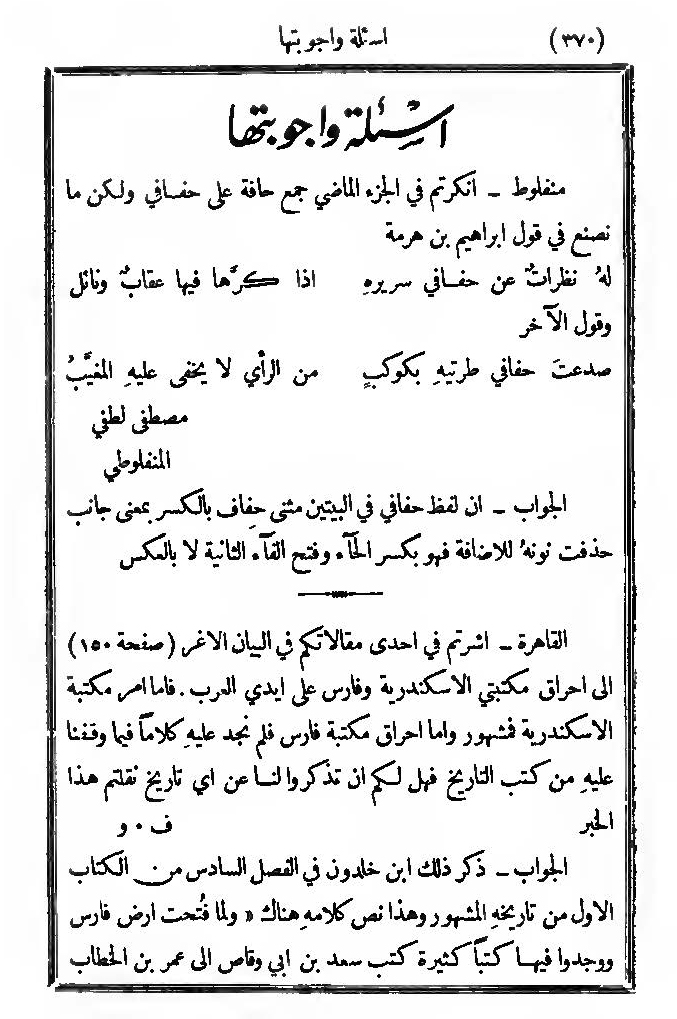 (٣٧٠) اسئلة واجوبتها
اسئلة واجوبتها
منفلوط – انكرتم في الجزء الماضي جمع حافة على حفافي ولكن ما
نصنع في قول ابراهيم بن هرمة
لهُ نظراتٌ عن حفافي سريرهِ اذا كرَّها فيها عقابٌ ونائل
وقول الآخر
صدعتَ حفافي طرتيهِ بكوكبٍ من الرأي لا يخفى عليهِ المغيَّبُ
مصطفى لطفي
المنفلوطي
الجواب – ان لفظ حفافي في البيتين مثنى حِفاف بالكسر بمعنى جانب
حذفت نونهُ للاضافة فهو بكسر الحآء وفتح الفآء الثانية لا بالعكس
القاهرة – اشرتم في احدى مقالاتكم في البيان الاغر (صفحة ١٥٠)
الى احراق مكتبتي الاسكندرية وفارس على ايدي العرب. فاما امر مكتبة
الاسكندرية فمشهور واما احراق مكتبة فارس فلم نجد عليهِ كلاماً فيما وقفنا
عليهِ من كتب التاريخ فهل لكم ان تذكروا لنا عن اي تاريخ نقلتم هذا
الخبر ف ٠ و
الجواب – ذكر ذلك ابن خلدون في الفصل السادس من الكتاب
الاول من تاريخهِ المشهور وهذا نص كلامهِ هناك « ولما فُتحت ارض فارس
ووجدوا فيها كتباً كثيرة كتب سعد بن ابي وقاص الى عمر بن الخطاب